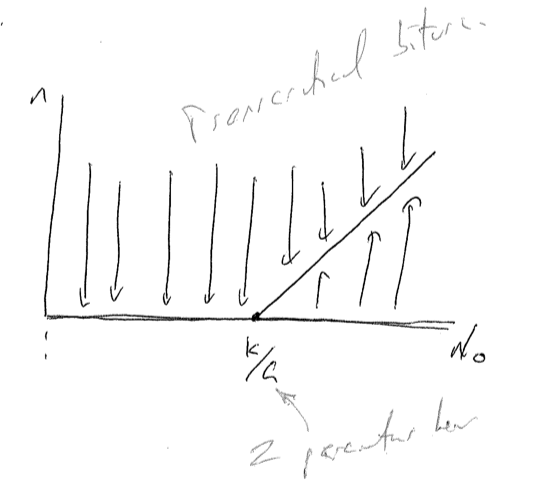 Transcritical bifurc.
n
K/G
N₀
2 parameters here